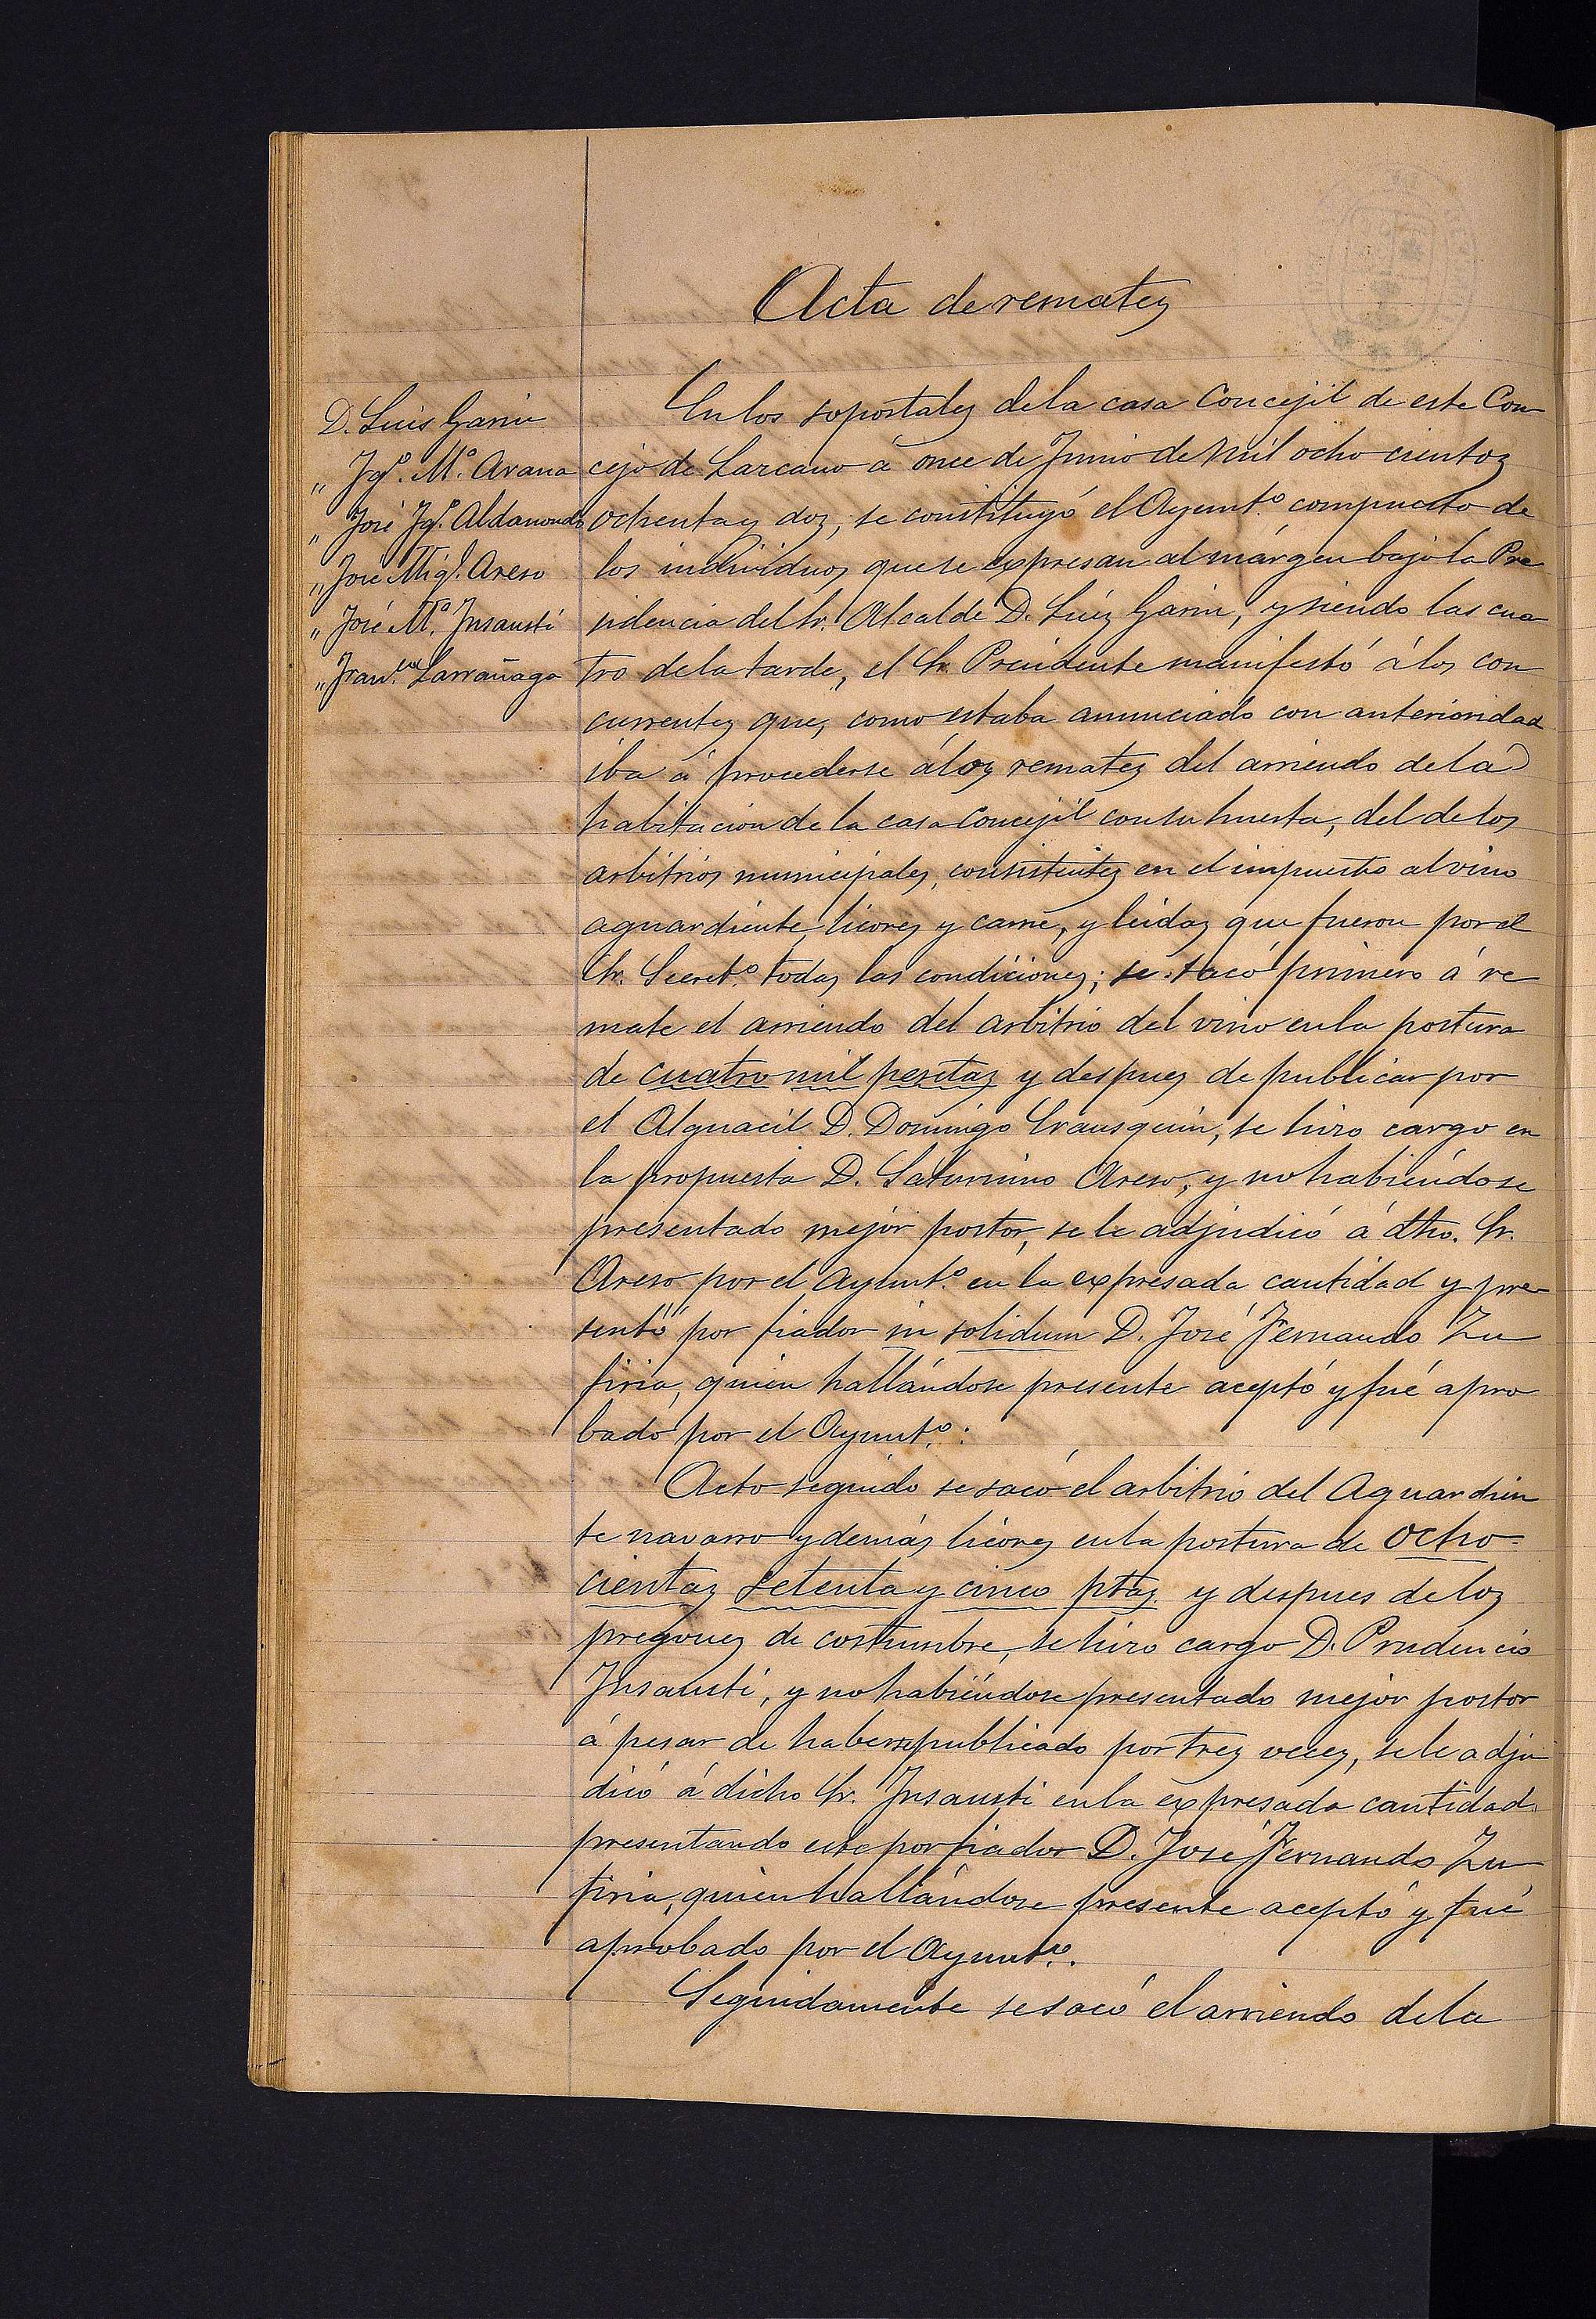 Acta de remates
D. Luis Garin
„ Jgº. Mº. Arana
„ José Jgº. Aldanondo
„ José Migl. Areso
„ José Mº. Insausti
„ Fran.co Larrañaga
En los soportales de la casa Concejil de este Con
cejo de Larcano á once de Junio de mil ocho cientos
ochenta y dos, se constituyó el Ayuntº compuesto de
los individuos que se expresan al márgen bajo la Pre
sidencia del Sr. Alcalde D. Luis Garin, y siendo las cua
tro de la tarde, el Sr. Presidente manifestó á los con
currentes que, como estaba anunciado con anterioridad
iba á procederse á los remates del arriendo de la
habitacion de la casa Concejil con su huerta, del de los
arbitrios municipales, consistentes en el impuesto al vino
aguardiente, licores y carne, y leidas que fueron por el
Sr. Secretº. todas las condiciones; se sacó primero á re
mate el arriendo del arbitrio del vino en la postura
de cuatro mil pesetas y despues de publicar por
el Alguacil D. Domingo Irausquin, se hizo cargo en
la propuesta D. Saturnino Areso, y no habiéndose
presentado mejor postor, se le adjudicó á dho. Sr.
Areso por el Ayuntº. en la expresada cantidad y pre
sentó por fiador in solidum D. José Fernando Zu
firia, quien hallándose presente aceptó y fué apro
bado por el Ayuntº:
Acto seguido se sacó el arbitrio del Aguardien
te navarro y demás licores en la postura de ocho-
cientas setenta y cinco ptas. y despues de los
pregones de costumbre, se hizo cargo D. Prudencio
Insausti, y no habiéndose presentado mejor postor
á pesar de haberse publicado por tres veces, se le adju
dicó á dicho Sr. Insausti en la expresada cantidad.
presentando este por fiador D. José Fernando Zu
firia, quien hallándose presente aceptó y fué
aprobado por el Ayunto.
Seguidamente se sacó el arriendo de la